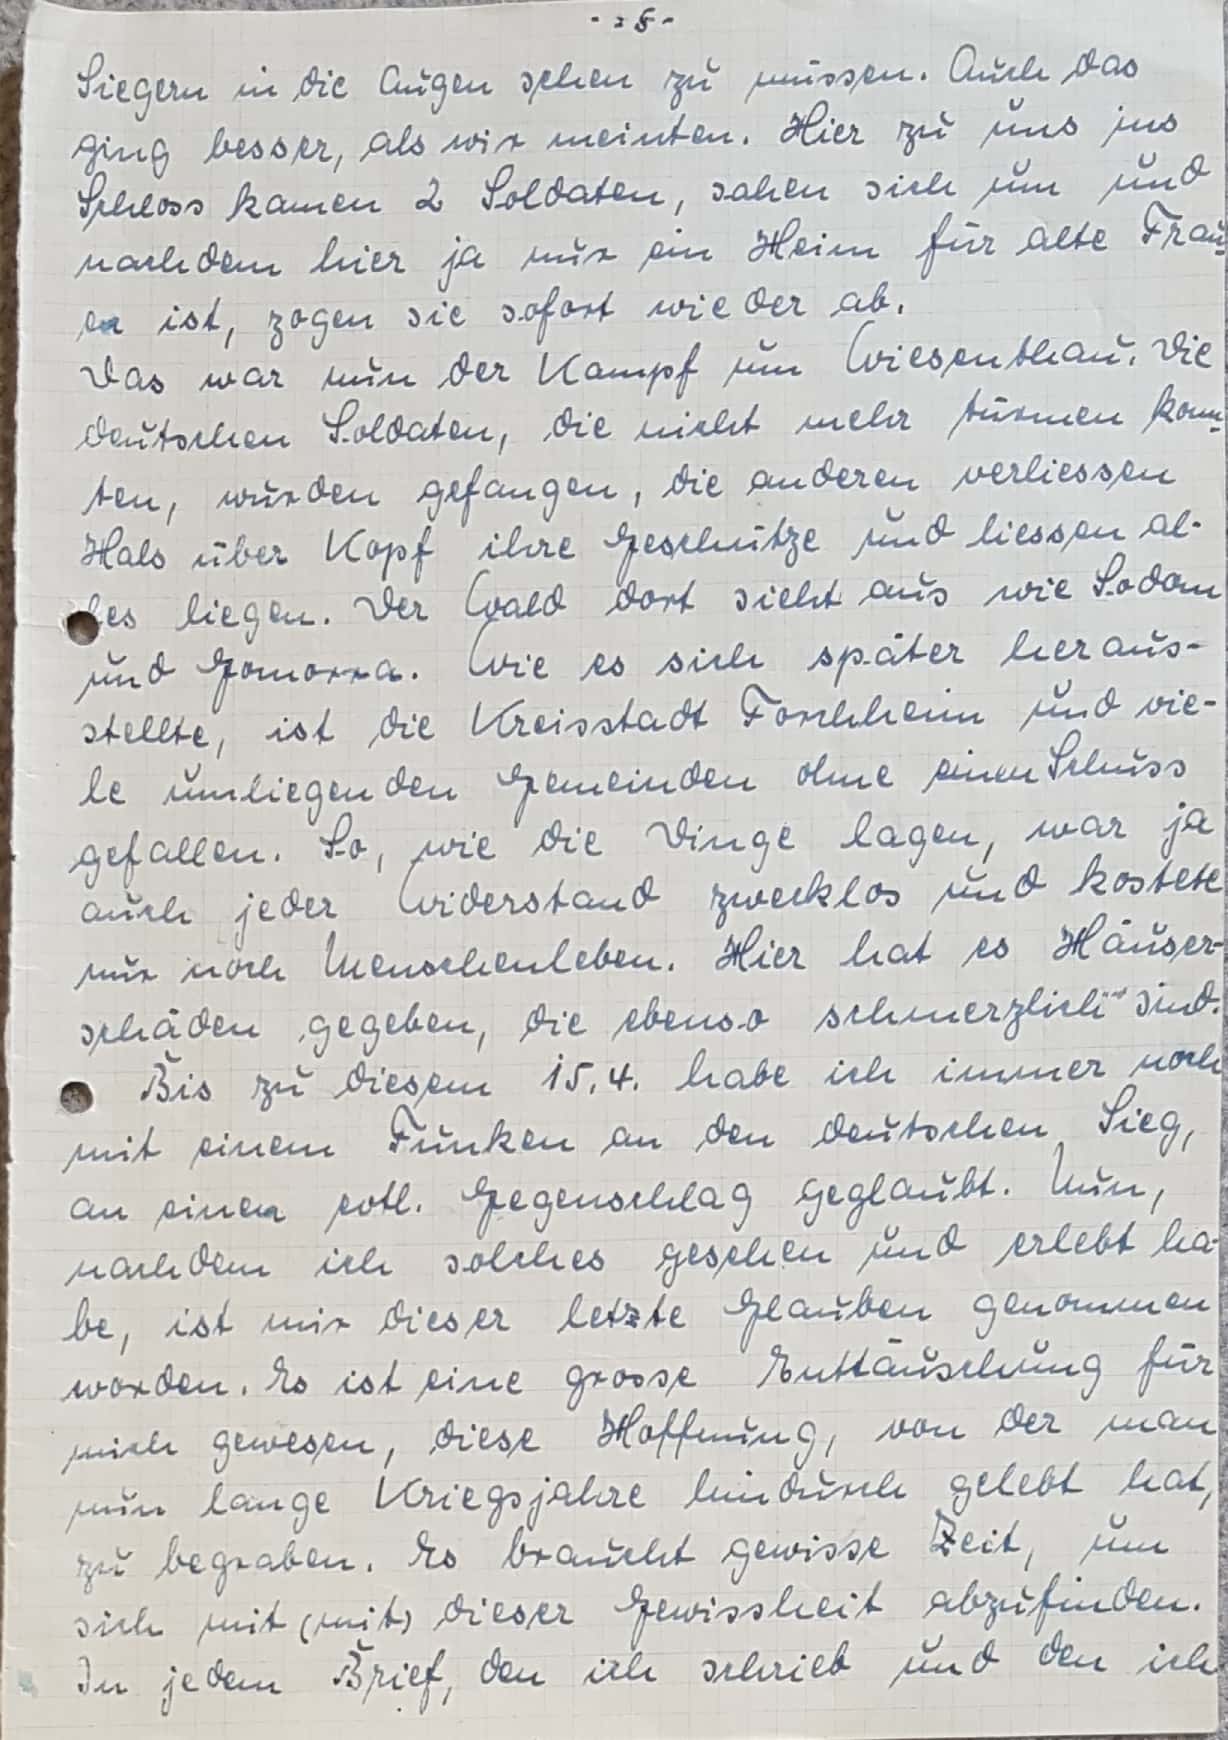 - 25 -
Siegern in die Augen sehen zu müssen. Auch das
ging besser, als wir meinten. Hier zu uns ins
Schloss kamen 2 Soldaten, sahen sich um und
nachdem hier ja nur ein Heim für alte Frau-
en ist, zogen sie sofort wieder ab.
Das war nun der Kampf um Wiesenthau. Die
deutschen Soldaten, die nicht mehr türmen konn-
ten, wurden gefangen, die anderen verliessen
Hals über Kopf ihre Geschütze und liessen al-
les liegen. Der Wald dort sieht aus wie Sodom
und Gomorra. Wie es sich später heraus-
stellte, ist die Kreisstadt Forchheim und vie-
le umliegenden Gemeinden ohne einen Schuss
gefallen. So, wie die Dinge lagen, war ja
auch jeder Widerstand zwecklos und kostete
nur noch Menschenleben. Hier hat es Häuser-
schäden gegeben, die ebenso schmerzlich sind.
Bis zu diesem 15.4. habe ich immer noch
mit einem Funken an den deutschen Sieg,
an einen evtl. Gegenschlag geglaubt. Nun,
nachdem ich solches gesehen und erlebt ha-
be, ist mir dieser letzte Glauben genommen
worden. Es ist eine grosse Enttäuschung für
mich gewesen, diese Hoffnung, von der man
nun lange Kriegsjahre hindurch gelebt hat,
zu begraben. Es braucht gewisse Zeit, um
sich mit (mit) dieser Gewissheit abzufinden.
In jedem Brief, den ich schrieb und den ich